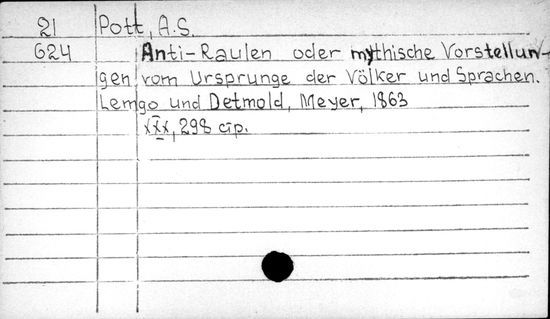 21 Pott, A.S.
G24 Anti-Raulen oder mythische Vorstellun-
gen vom Ursprunge der Völker und Sprachen.
Lemgo und Detmold, Meyer, 1863
XXX, 298 стр.